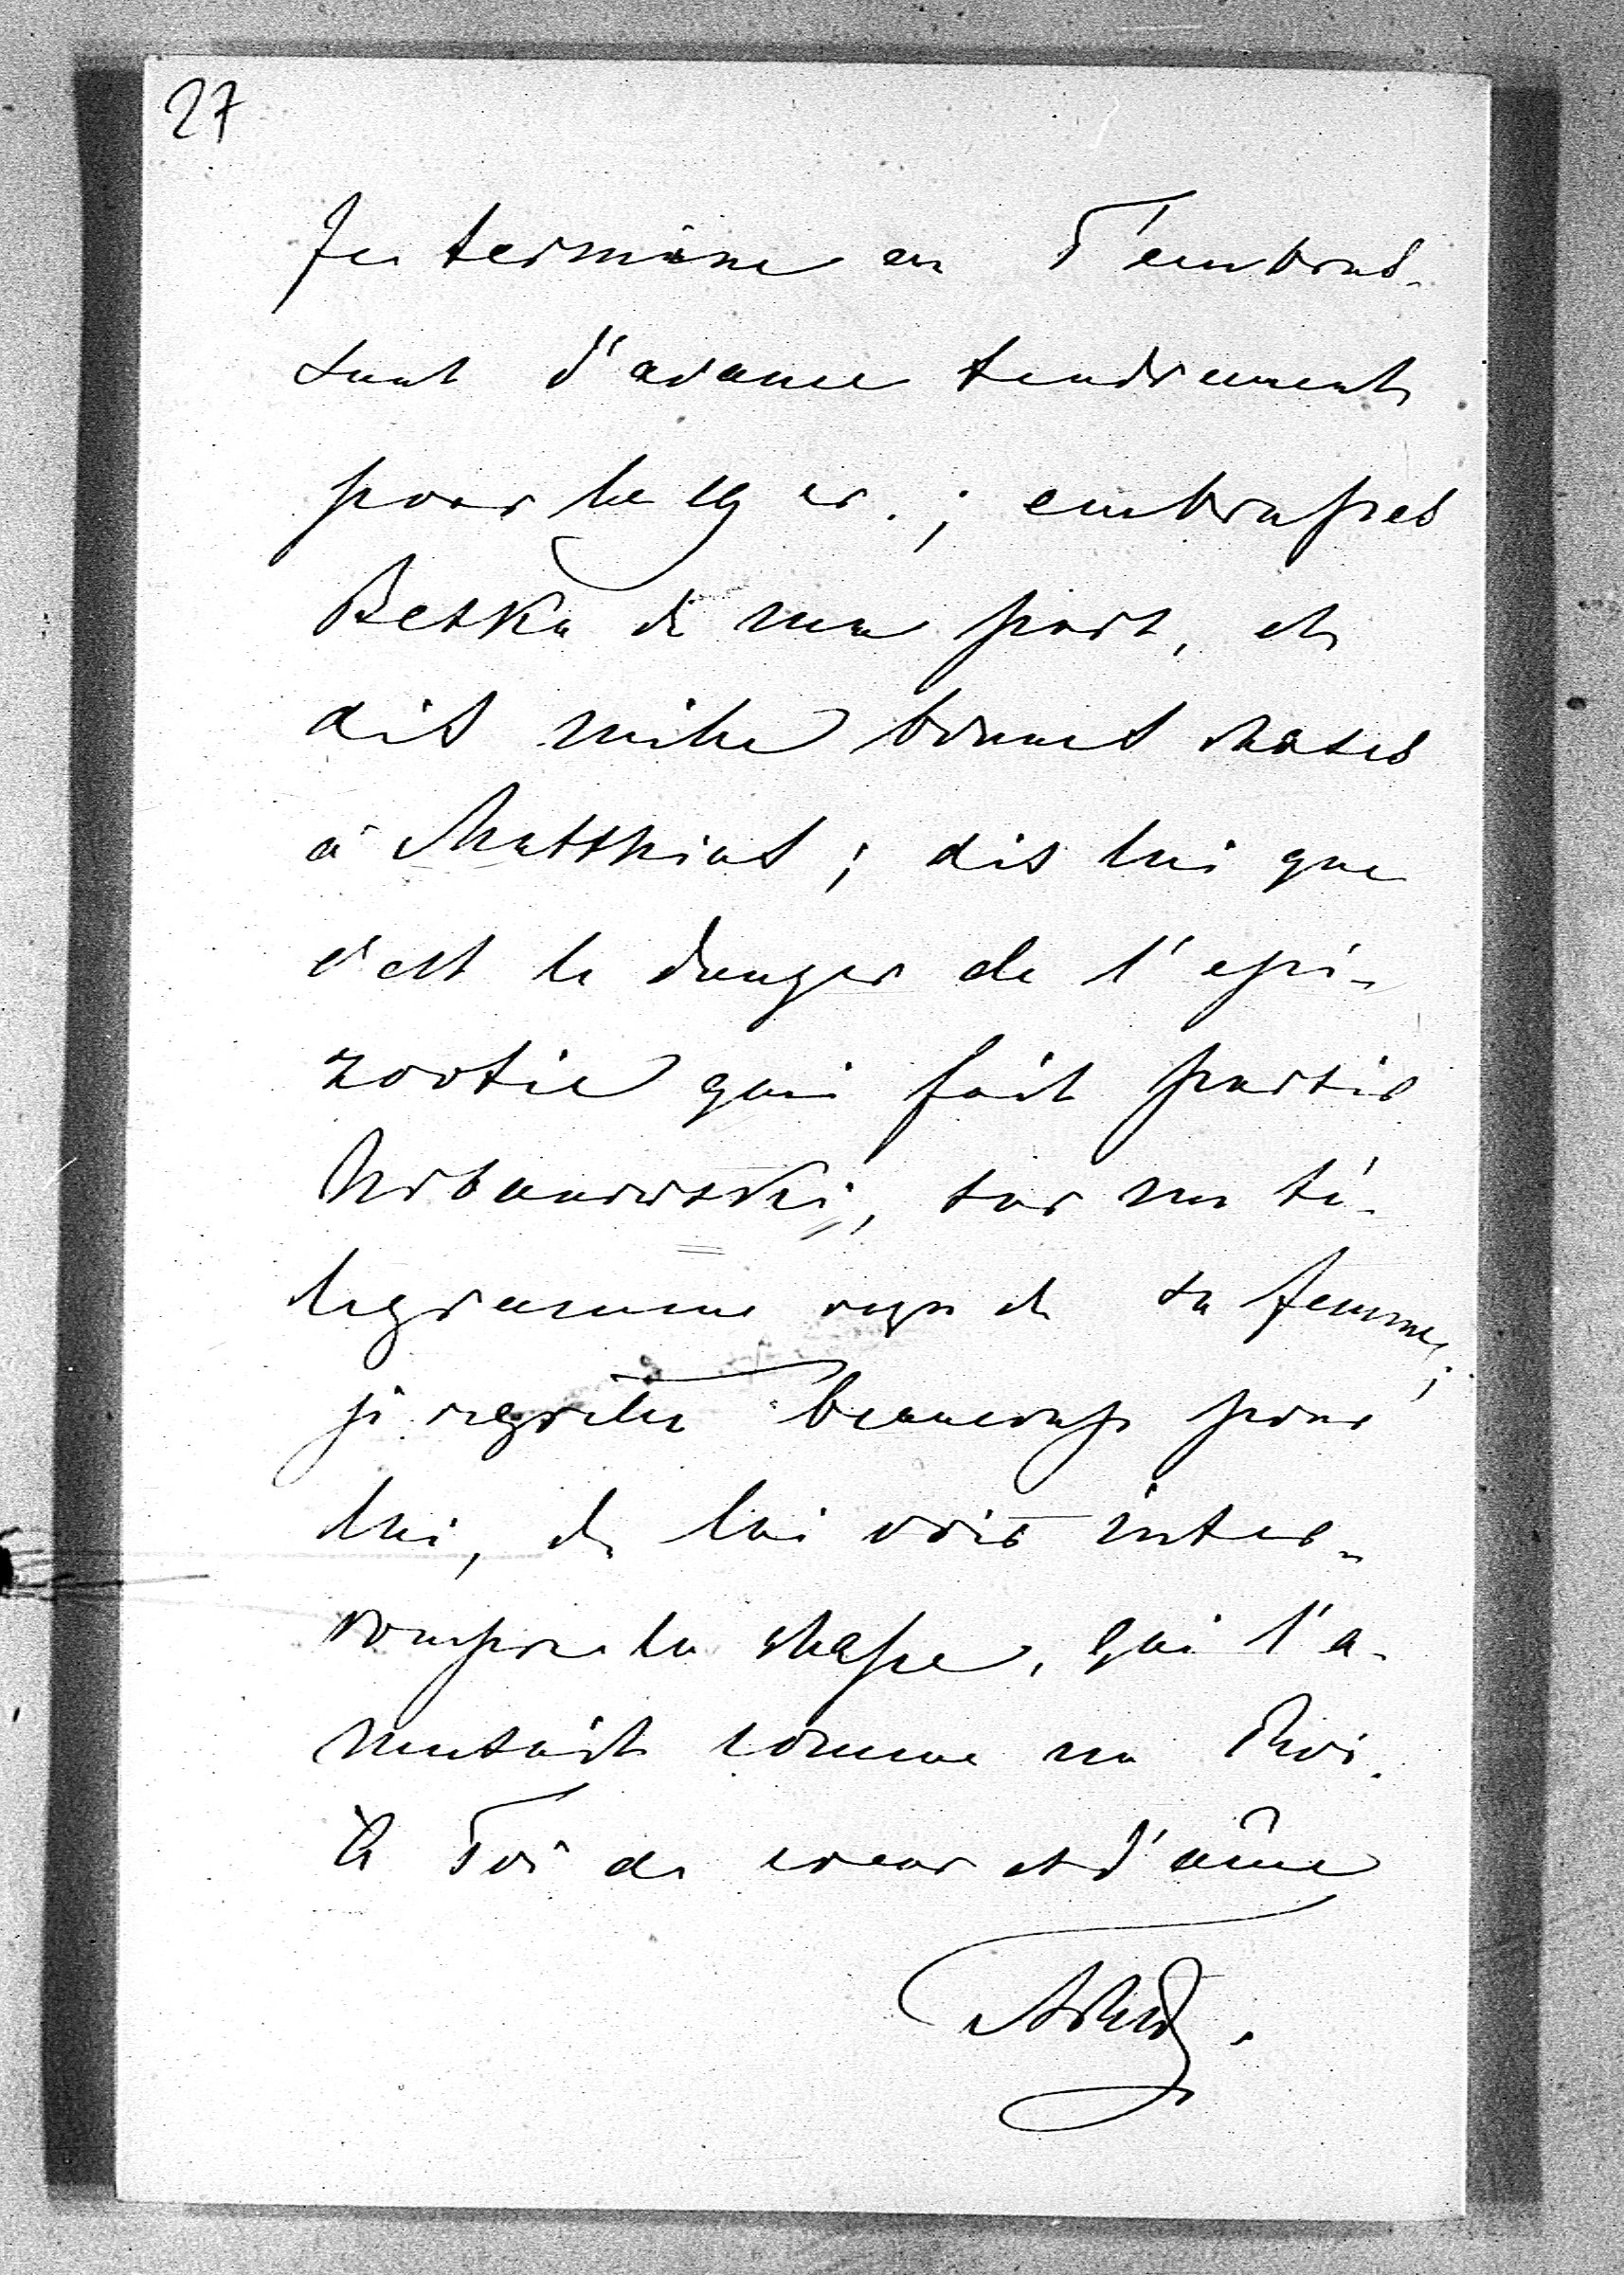 27
Je termine en T'embras-
sant d'avance tendrement
pour le 19 cr. ; embrasses
Betka de ma part, et
dis mille bonnes choses
à Matthias ; dis lui que
c'est le danger de l'epi-
zootie qui fait partir
Urbanowski, sur un té-
legramme reçu de sa femme ;
je regrette beaucoup pour
lui, de lui voir inter-
rompre la chasse, qui l'a-
musait comme un Roi.
à Toi de coeur et d'âme